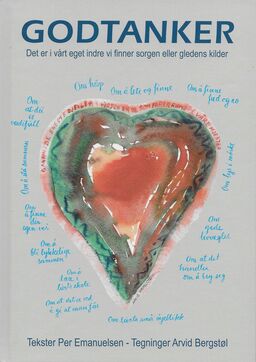 GODTANKER
Det er i vårt eget indre vi finner sorgen eller gledens kilder
Om håp
Om å lete og finne
Om å finne
fred og ro
Om
at du
er
verdifull
Om lys i mørke
Om å stå sammen
Om
å finne
din
egen vei
Om
gode
leveregler
Om å
bli lykkelige
sammen
Om at det
handler
om å bry seg
Om
å
leve i
Om at det er ved
å gi at man får
Om livets små øyeblikk
Tekster Per Emanuelsen - Tegninger Arvid Bergstøl